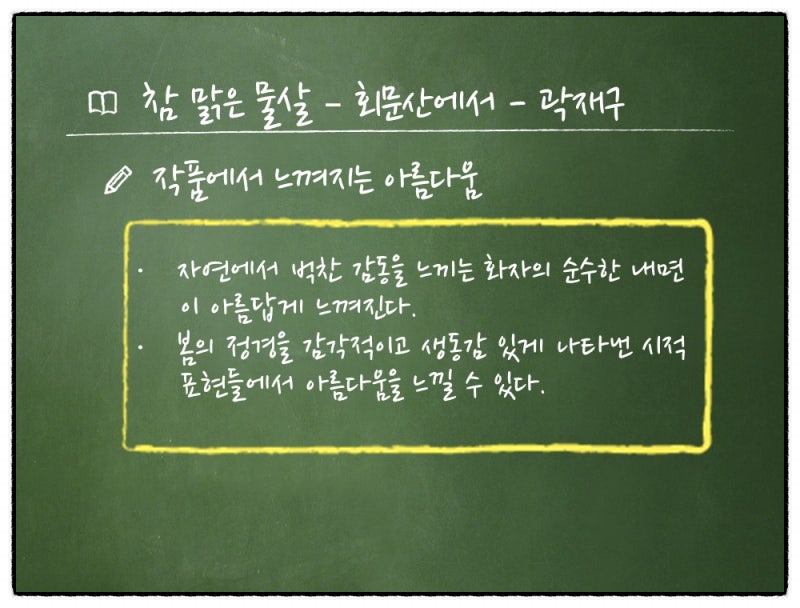 참 맑은 물살 - 회문산에서 - 곽재구
작품에서 느껴지는 아름다움
· 자연에서 벅찬 감동을 느끼는 화자의 순수한 내면
이 아름답게 느껴진다.
· 봄의 정경을 감각적이고 생동감 있게 나타낸 시적
표현들에서 아름다움을 느낄 수 있다.